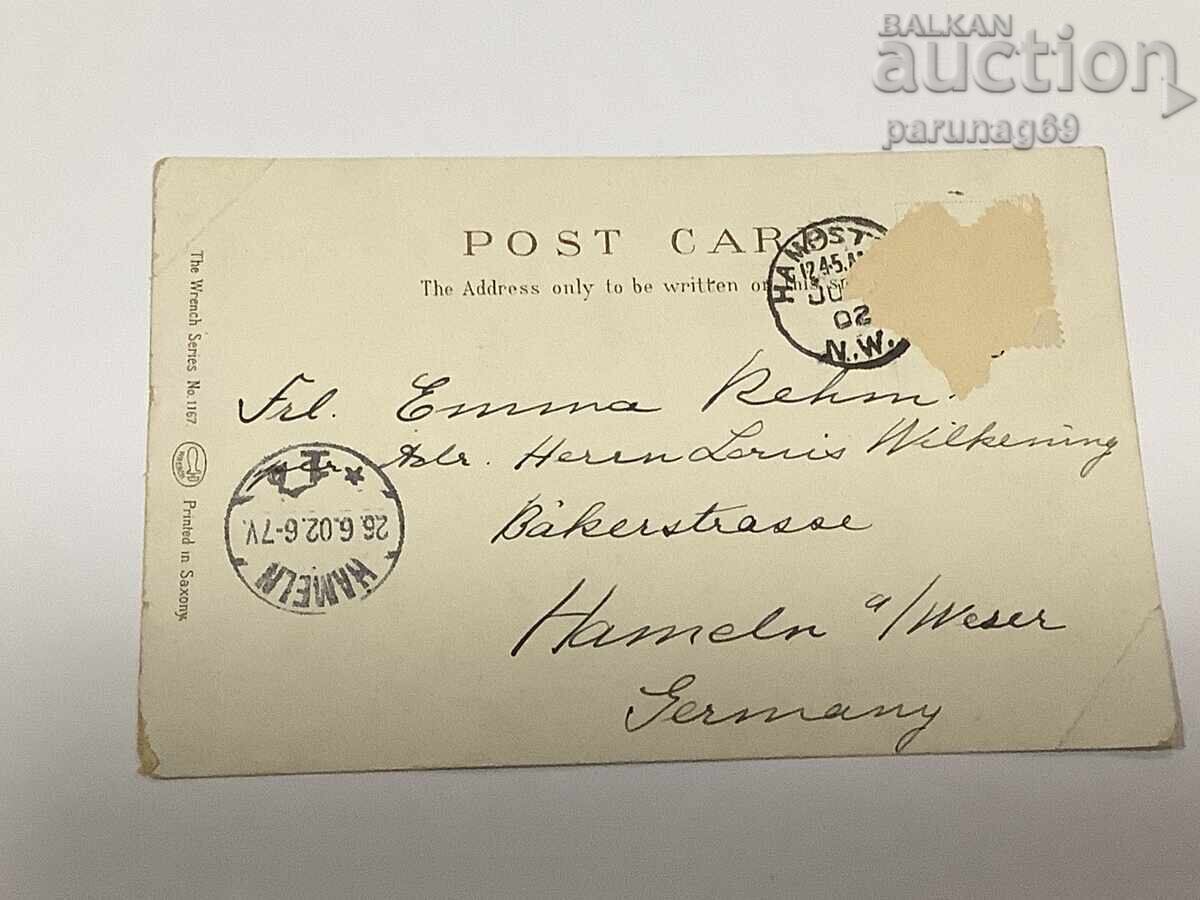 BALKAN
auction
parunag69
POST CARD
The Address only to be written on this
HAMPST
12.45.AM
JU
02
N.W.
Frl. Emma Rehm
per Adr. Herrn Louis Wilkening
Bäkerstrasse
Hameln a/Weser
Germany
HAMELN
26.6.02.6-7V.
The Wrench Series No. 1167.
Printed in Saxony.